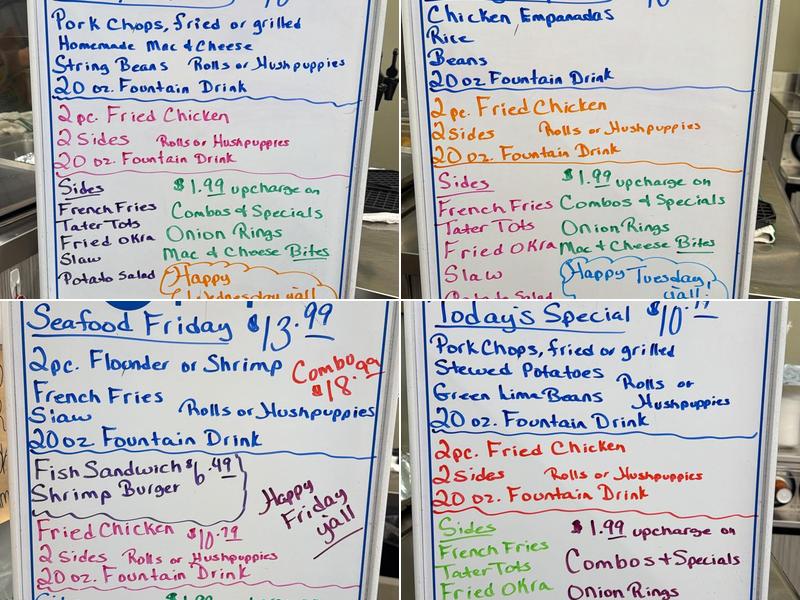 Pork Chops, fried or grilled
Homemade Mac & Cheese
String Beans Rolls or Hushpuppies
20 oz. Fountain Drink
2 pc. Fried Chicken
2 Sides Rolls or Hushpuppies
20 oz. Fountain Drink
Sides $1.99 upcharge on
French Fries Combos & Specials
Tater Tots Onion Rings
Fried Okra Mac & Cheese Bites
Slaw
Potato Salad Happy
Wednesday, y'all
Chicken Empanadas
Rice
Beans
20 oz. Fountain Drink
2 pc. Fried Chicken
2 Sides Rolls or Hushpuppies
20 oz. Fountain Drink
Sides $1.99 upcharge on
French Fries Combos & Specials
Tater Tots Onion Rings
Fried Okra Mac & Cheese Bites
Slaw Happy Tuesday,
Potato Salad y'all
Seafood Friday $13.99
2 pc. Flounder or Shrimp Combo
French Fries $18.99
Slaw Rolls or Hushpuppies
20 oz. Fountain Drink
Fish Sandwich $6.49
Shrimp Burger
Happy
Friday
y'all
Fried Chicken $10.99
2 Sides Rolls or Hushpuppies
20 oz. Fountain Drink
Today's Special $10.99
Pork Chops, fried or grilled
Stewed Potatoes
Green Lima Beans Rolls or
Hushpuppies
20 oz. Fountain Drink
2 pc. Fried Chicken
2 Sides Rolls or Hushpuppies
20 oz. Fountain Drink
Sides $1.99 upcharge on
French Fries
Tater Tots Combos & Specials
Fried Okra Onion Rings